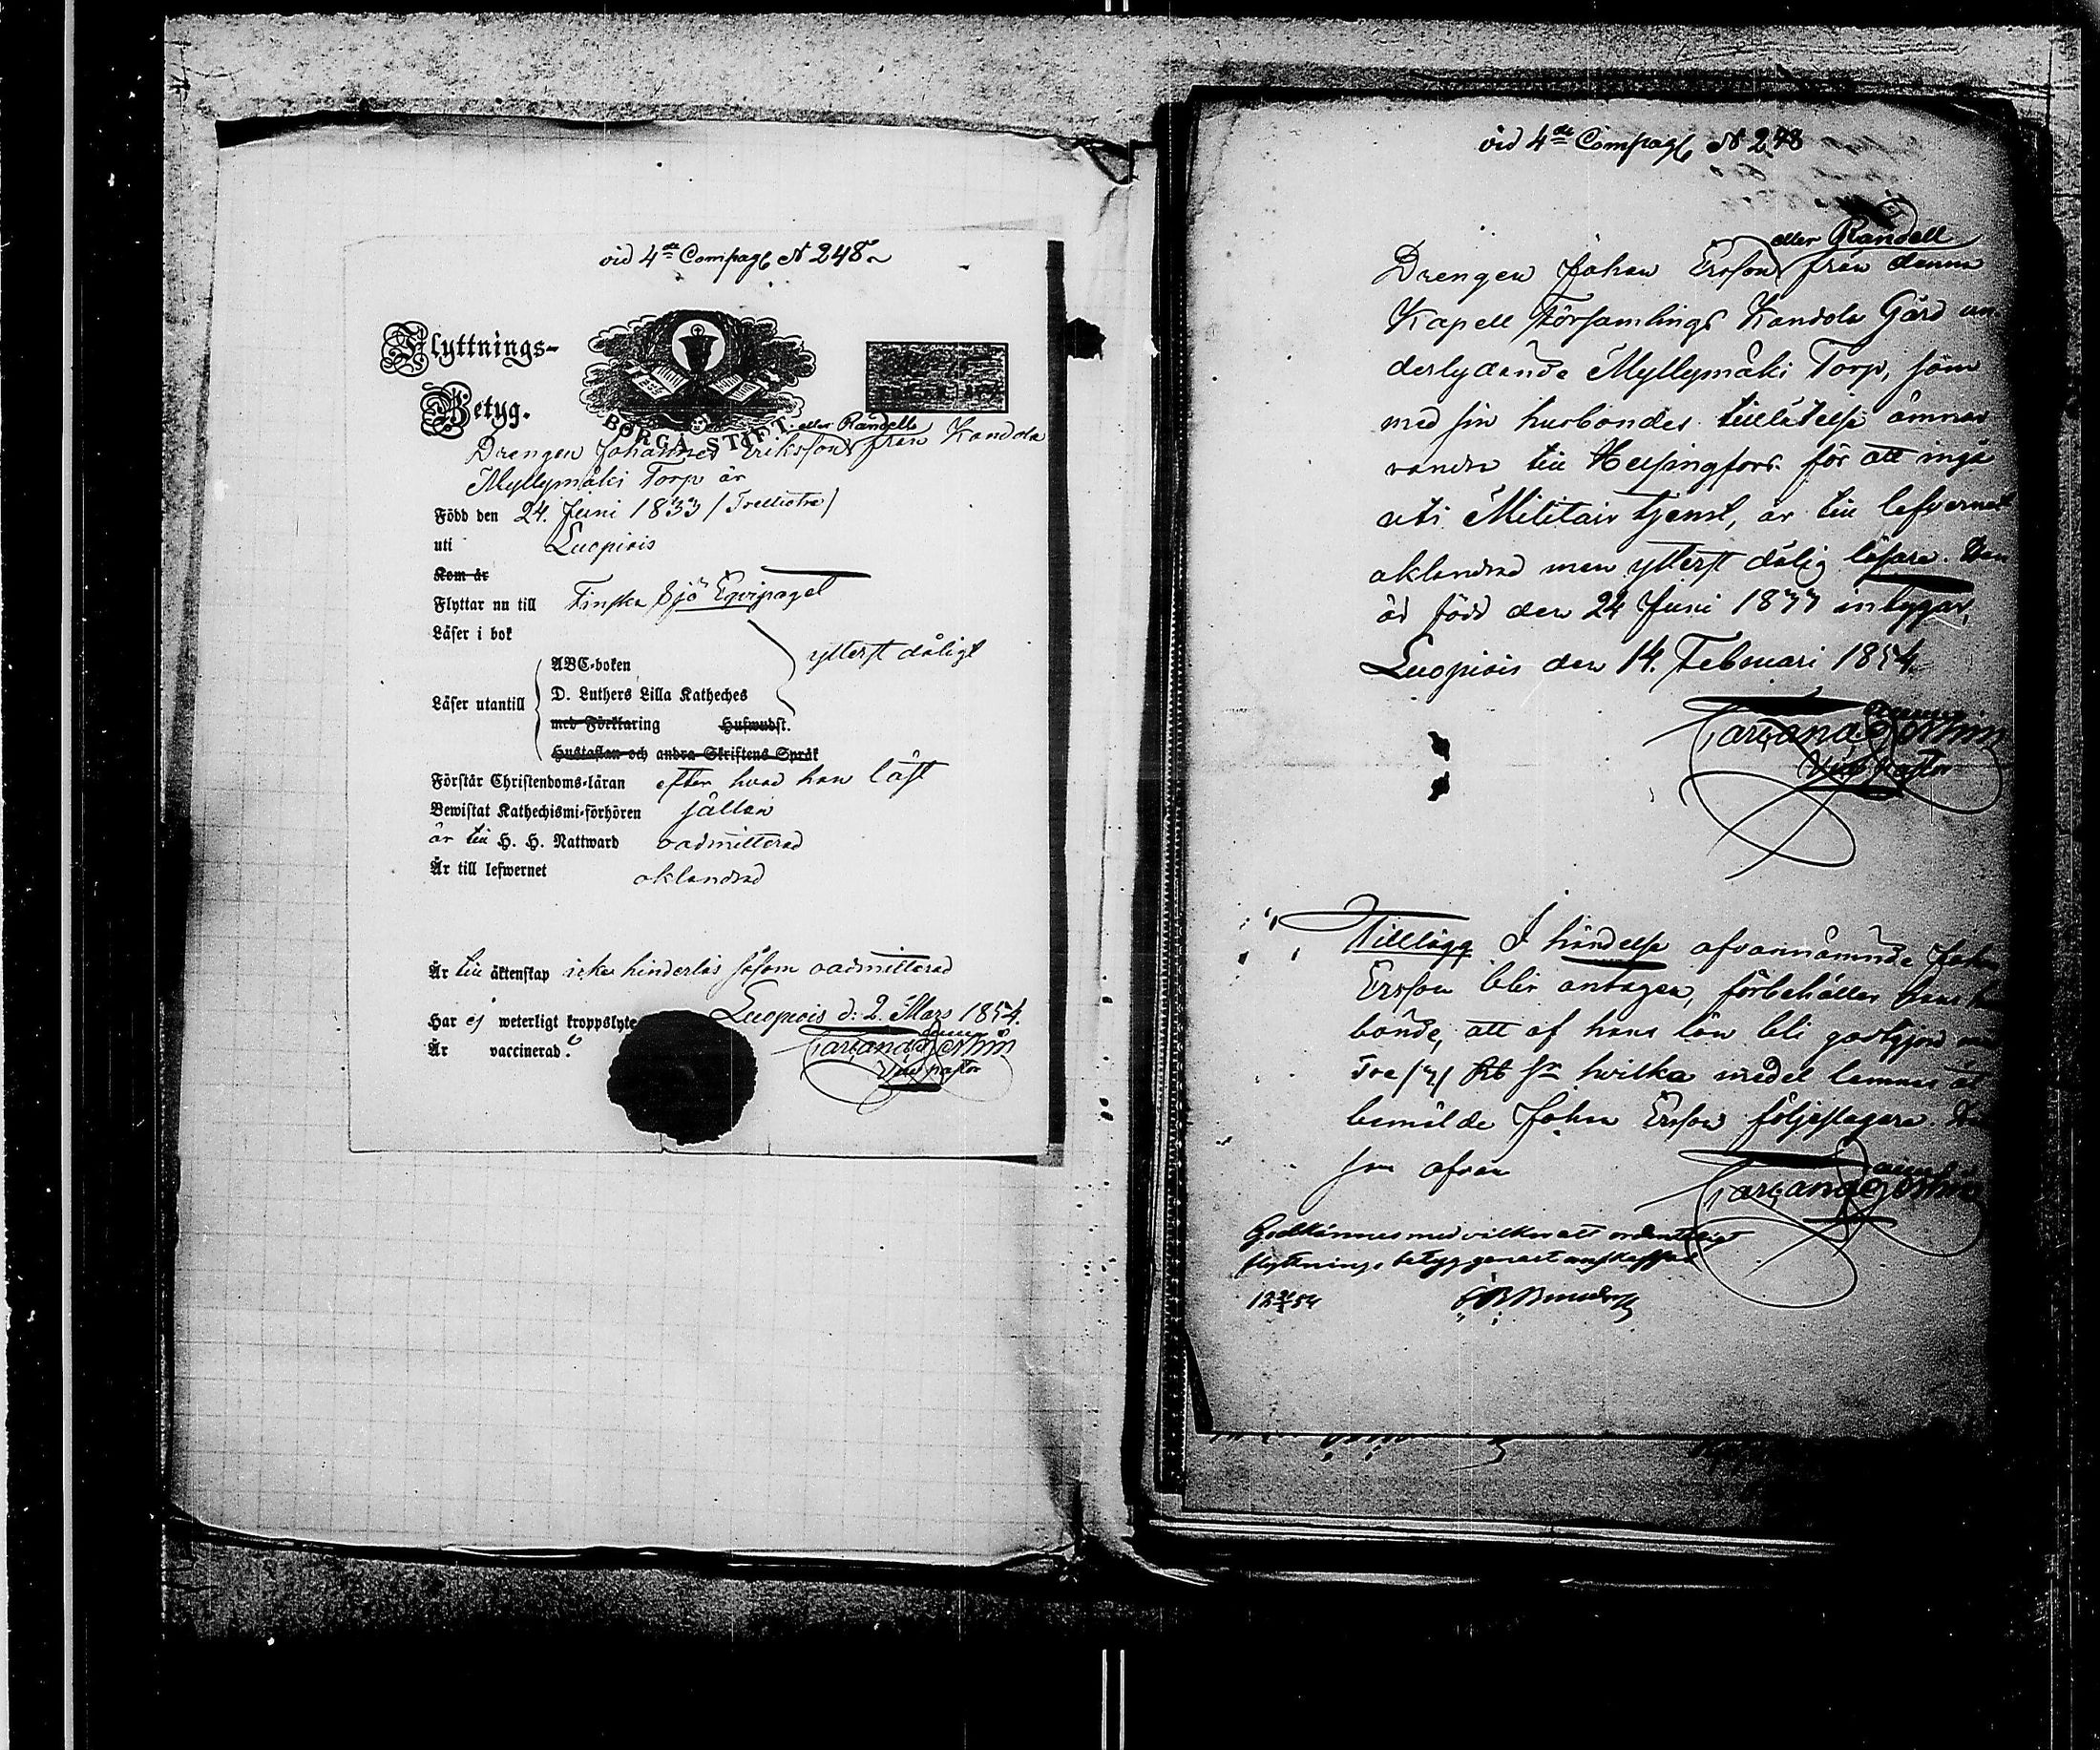 vid 4de Compag N 248
Flyttnings-
Betyg.
BORGÅ STIFT.
eller Randell
Drengen Johannes Eriksson från Kandola
Myllymäki Torp är
Född den 24. Juni 1833 (Trettiotre)
uti Luopiois
Kom är
Flyttar nu till Finska Sjö Eqvipaget
Läser i bok
ytterst dåligt
ABC-boken
Läser utantill D. Luthers Lilla Katheches
med Förklaring Huswudst.
Hustaflan och andra Skriftens Språk
Förstår Christendoms-läran efter hvad han läst
Bewistat Kathechismi-förhören sällan
är till H. H. Nattward oadmitterad
Är till lefwernet oklandrad
Är till äktenskap icke hinderlös såsom oadmitterad
Luopiois d: 2. Mars 1854.
Har ej weterligt kroppslyte
Är vaccinerad.
Vice pastor
vid 4de Compag N 248
eller Randell
Drengen Johan Ersson från denna
Kapell Församlings Kandola Gård un-
derlydande Myllymäki Torp, som
med sin husbondes tillåtelse ämnar
vandra till Helsingfors för att ingå
uti Militair tjenst, är till lefvernet
oklandrad men ytterst dålig läsare. Han
är född den 24 Juni 1833 intygar,
Luopiois den 14. Februari 1854.
Vice pastor
Tillägg I händelse ofvannämnde Johan
Ersson blir antagen, förbehåller hans hus-
bonde, att af hans lön bli godtgjord med
Tre (3) Rb Sr hvilka medel lemnas åt
bemälde Johan Ersson följeslagare. Dat
som ofvan
Godkännes med vilkor att ordentligt
flyttnings betyg genast anskaffas